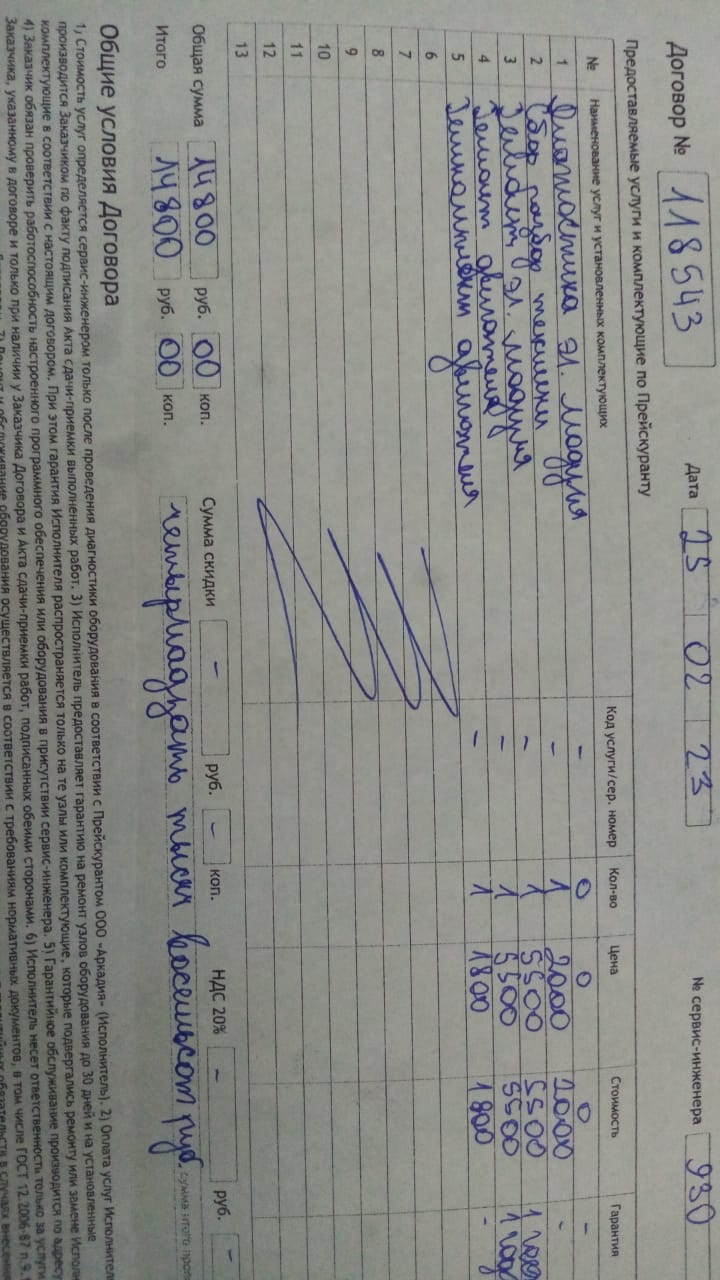 Договор № 118543 Дата 25 02 23 № сервис-инженера 930
Предоставляемые услуги и комплектующие по Прейскуранту
№ Наименование услуг и установленных комплектующих Код услуги/сер. номер Кол-во Цена Стоимость Гарантия
1 Диагностика эл. модуля - 0 0 0 -
2 Сбор разбор техники - 1 2000 2000 -
3 эл. модуля - 1 5500 5500 1 год
4 Ремонт двигателя - 1 5500 5500 1 год
5 Ремкомплект двигателя - 1 1800 1800 -
6
7
8
9
10
11
12
13
Общая сумма 14800 руб. 00 коп. Сумма скидки - руб. - коп. НДС 20% - руб. -
Итого 14800 руб. 00 коп. четырнадцать тысяч восемьсот руб.
Общие условия Договора
1) Стоимость услуг определяется сервис-инженером только после проведения диагностики оборудования в соответствии с Прейскурантом ООО «Аркадия» (Исполнитель). 2) Оплата услуг
производится Заказчиком по факту подписания Акта сдачи-приемки выполненных работ. 3) Исполнитель предоставляет гарантию на ремонт узлов оборудования до 30 дней и на установленные
комплектующие в соответствии с настоящим договором. При этом гарантия Исполнителя распространяется только на те узлы или комплектующие, которые подвергались ремонту или замене
4) Заказчик обязан проверить работоспособность настроенного программного обеспечения или оборудования в присутствии сервис-инженера. 5) Гарантийное обслуживание производится по адресу
Заказчика, указанному в договоре и только при наличии у Заказчика Договора и Акта сдачи-приемки работ, подписанных обеими сторонами. 6) Исполнитель несет ответственность только за услуги
обслуживание оборудования осуществляется в соответствии с требованиями нормативных документов, в том числе ГОСТ 12.2006-87 п.9.